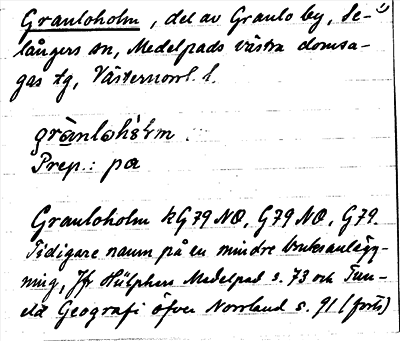 Granloholm, del av Granlo by, Se-
långers sn, Medelpads västra domsa-
gas tg, Västernorrl. l.
grànlohòlm.
Prep.: på
Granloholm kG79NO, G79NO, G79.
Tidigare namn på en mindre bruksanlägg-
ning, Jfr Hülphers Medelpad s. 73 och Tun-
eld Geografi öfver Norrland s. 91 (forts)